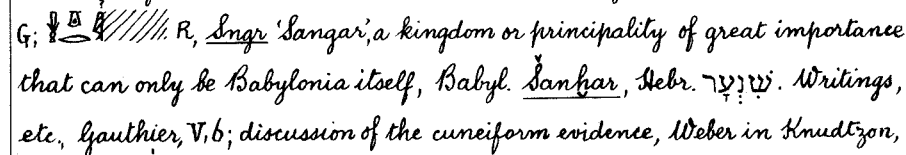 G; R, Sngr 'Sangar', a kingdom or principality of great importance
that can only be Babylonia itself, Babyl. Šanḫar, Hebr. שִׁנְעָר. Writings,
etc., Gauthier, V,6; discussion of the cuneiform evidence, Weber in Knudtzon,